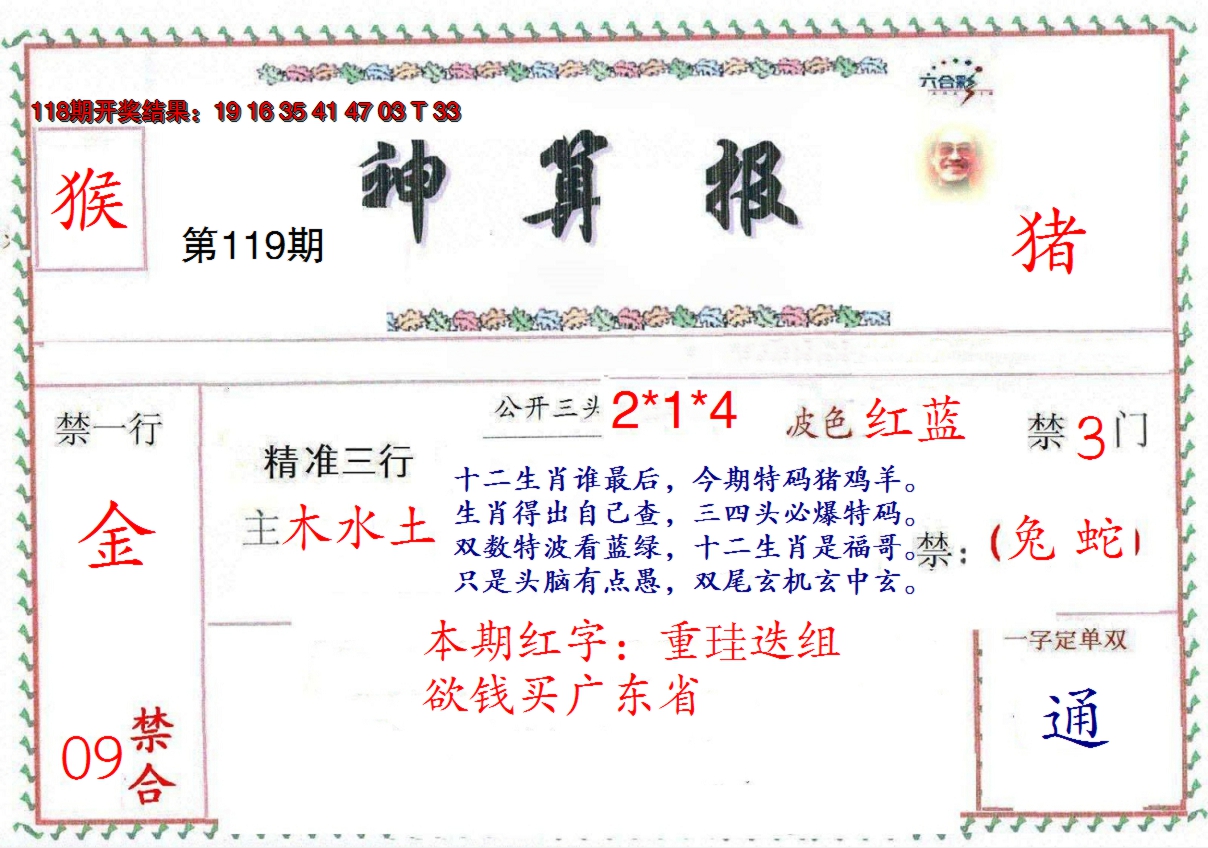 六合彩
118期开奖结果：19 16 35 41 47 03 T 33
神算报
猴
第119期
猪
公开三头 2*1*4
波色 红蓝
禁3门
禁一行
精准三行
十二生肖谁最后，今期特码猪鸡羊。
生肖得出自己查，三四头必爆特码。
主木水土
双数特波看蓝绿，十二生肖是福哥。
禁：（兔 蛇）
只是头脑有点愚，双尾玄机玄中玄。
金
本期红字：重珪迭组
欲钱买广东省
一字定单双
通
09禁合